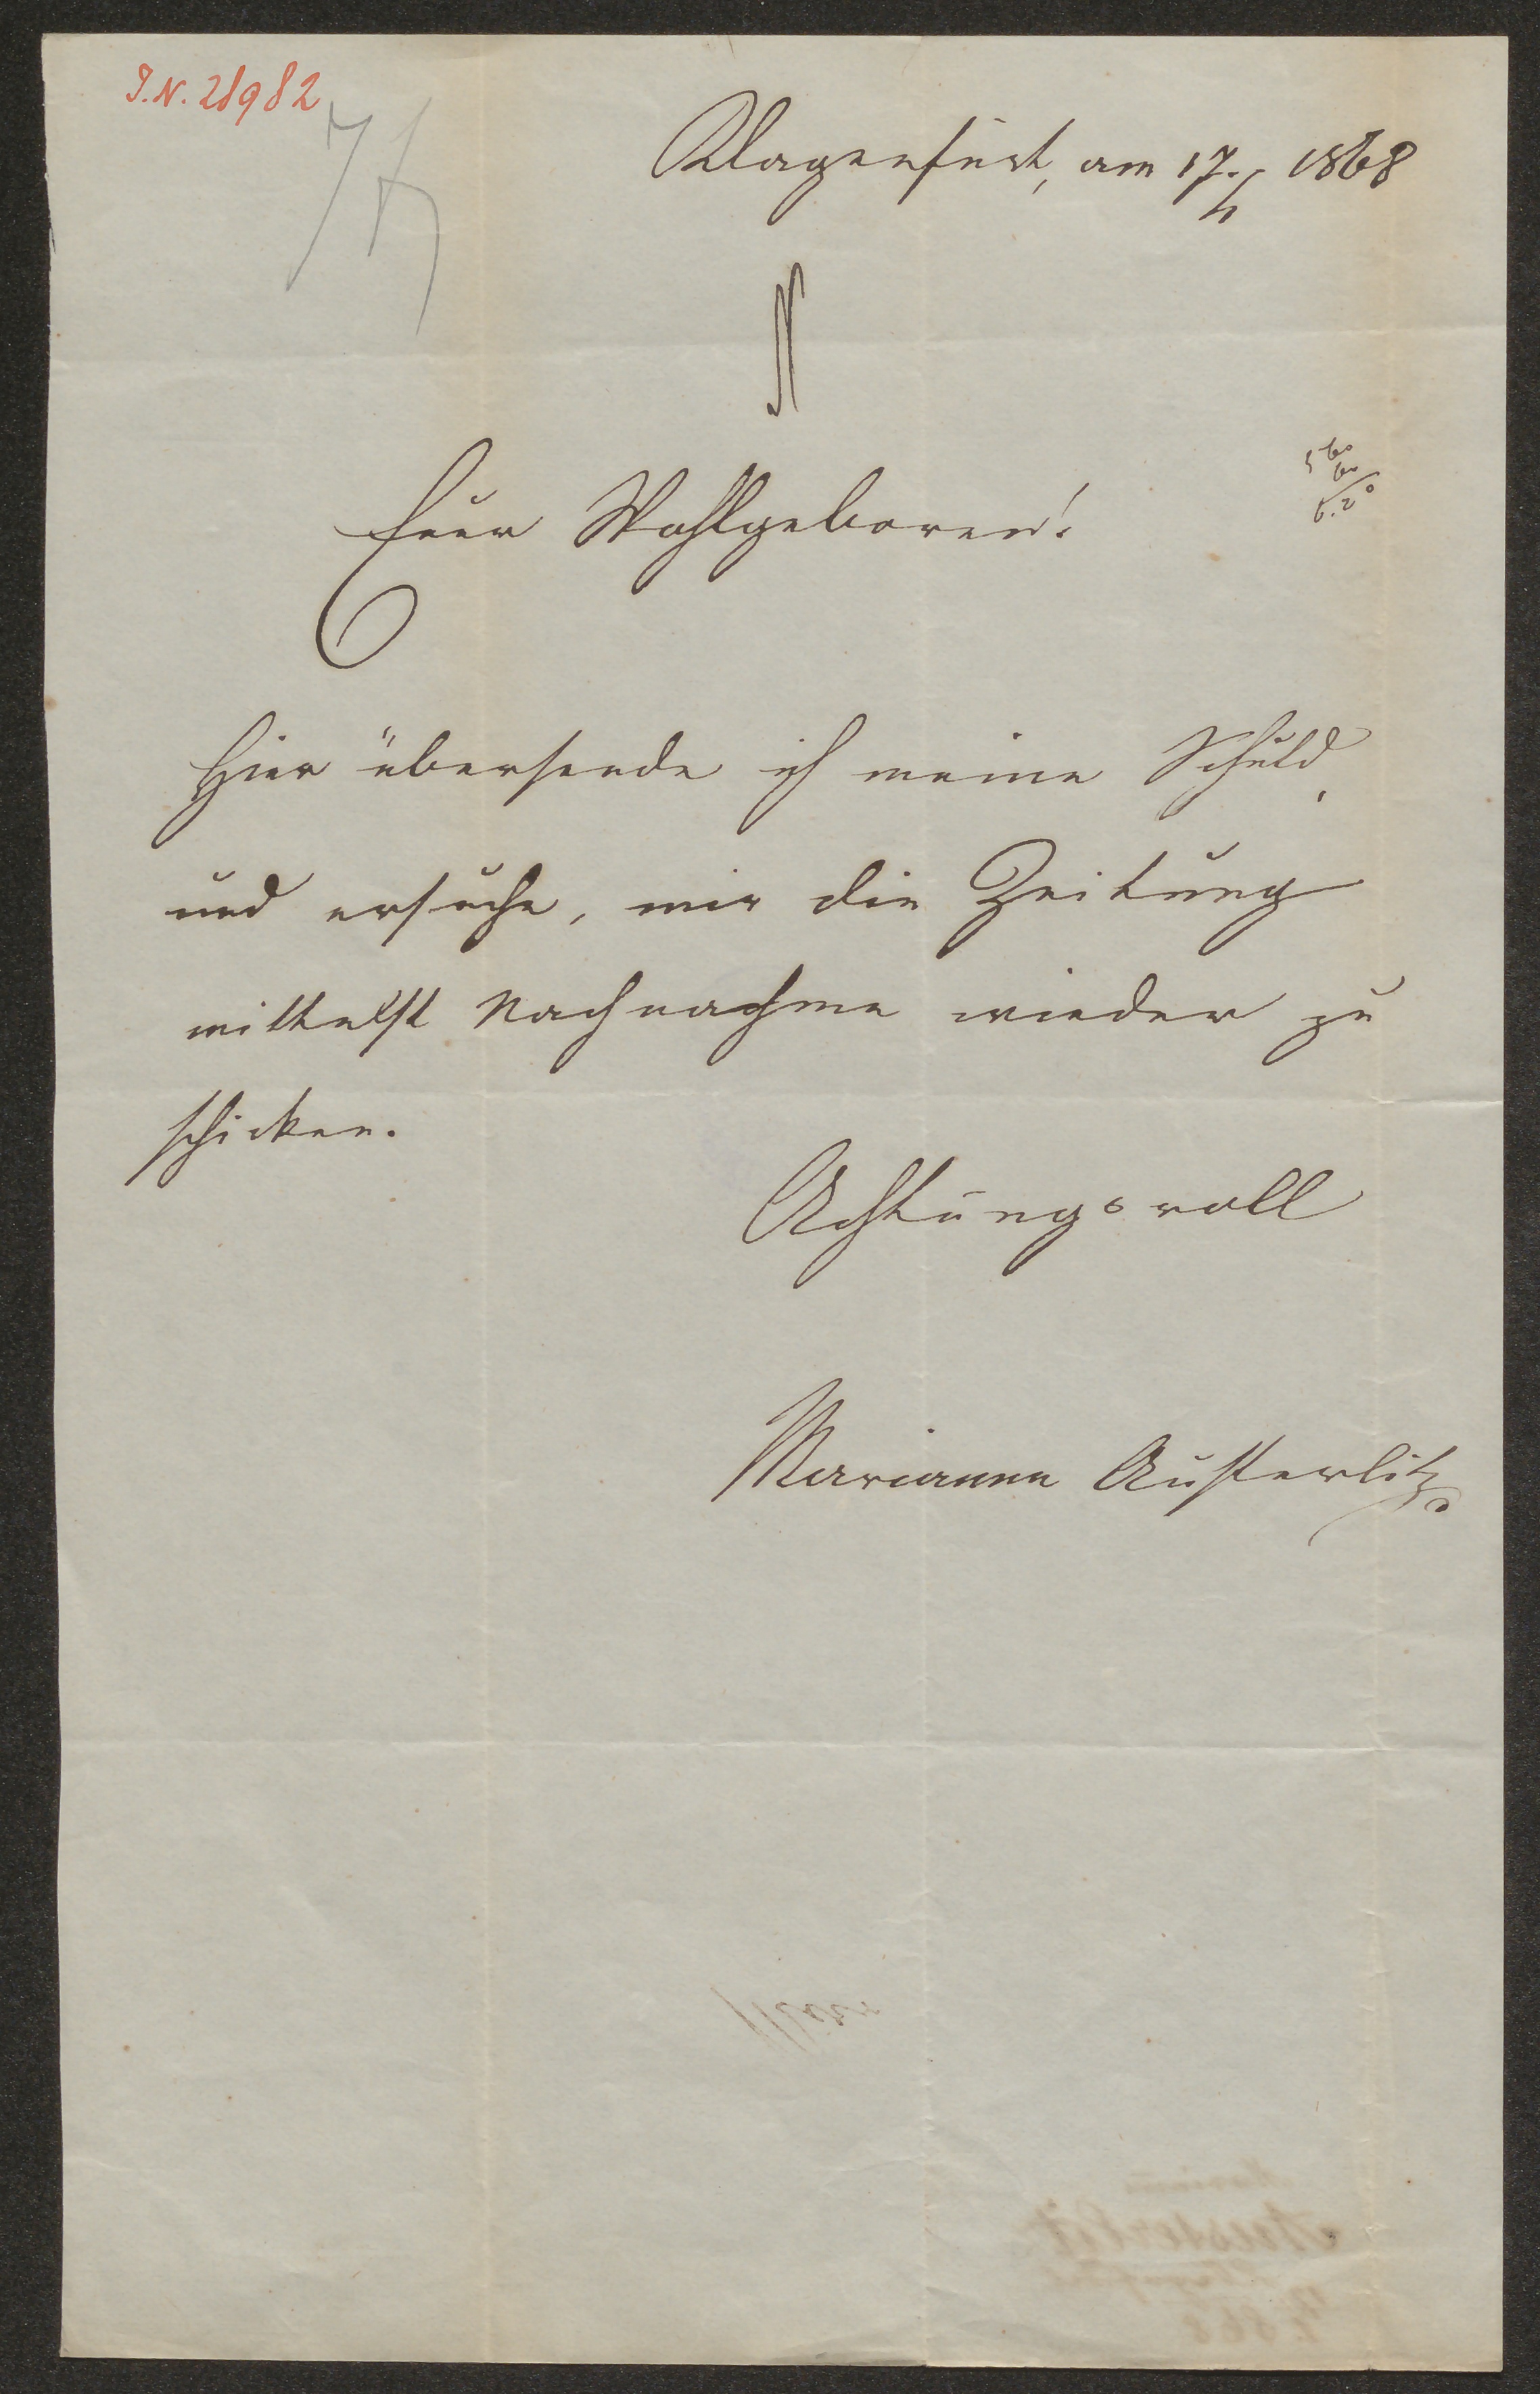 J.N. 28982
Klagenfurt, am 17./4 1868
Euer Wohlgeboren!
5 60
60
6.20
Hier übersende ich meine Schuld,
und ersuche, mir die Zeitung
mittelst Nachnahme wieder zu
schicken.
Achtungsvoll
Marianne Austerlitz